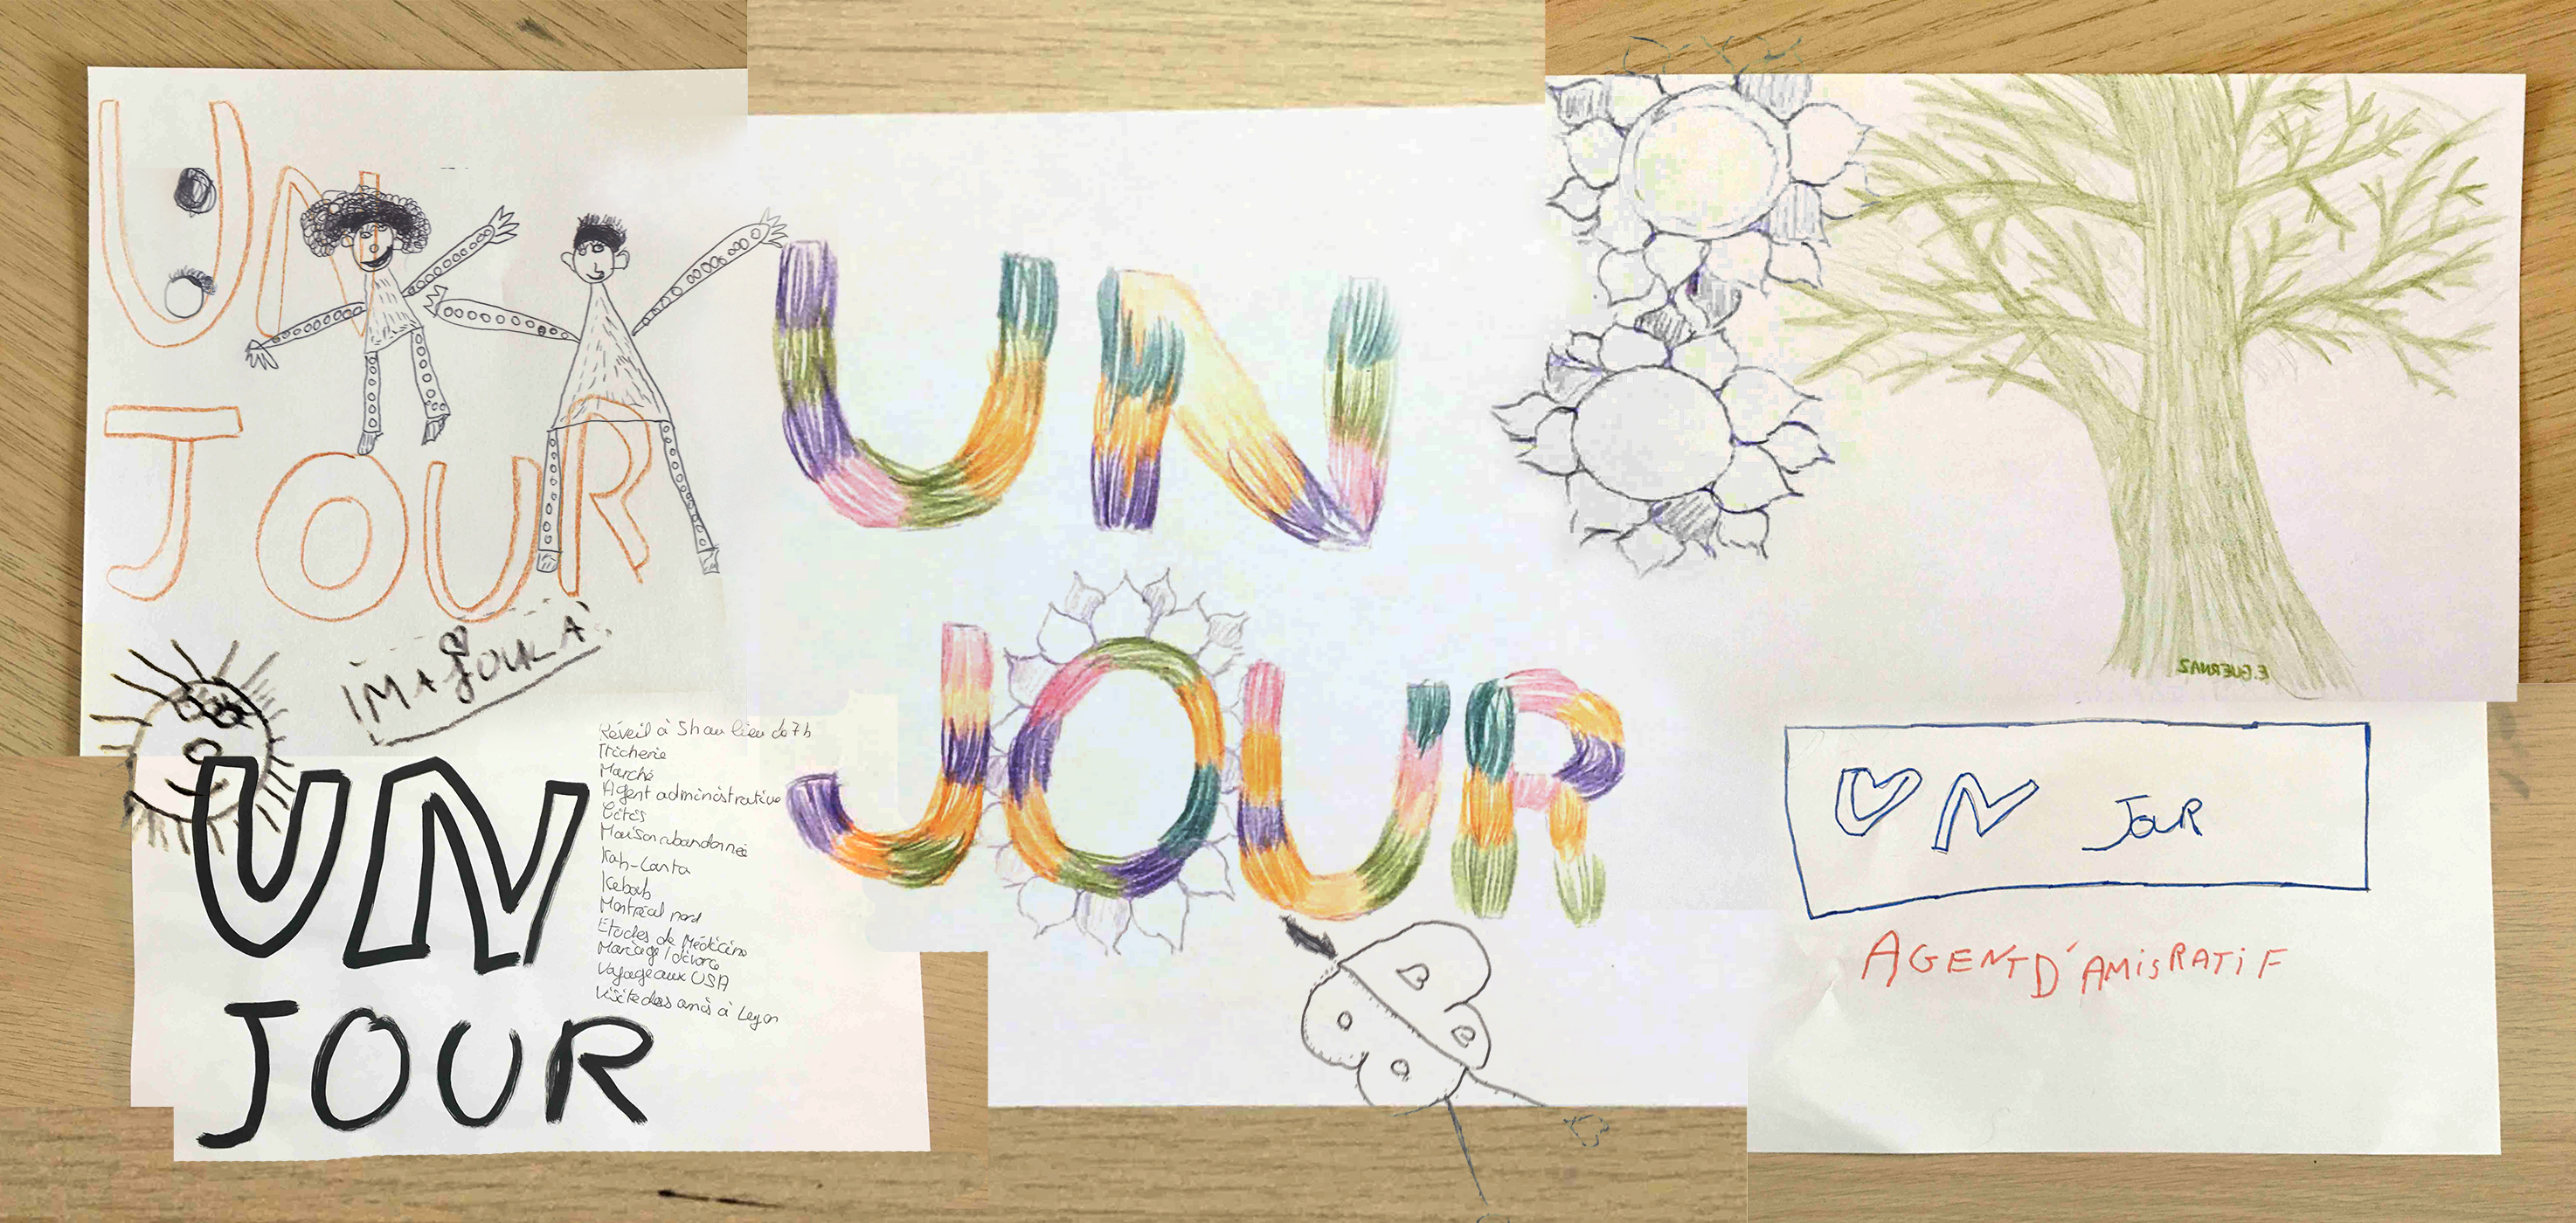 UN
JOUR
IMAJOURA
UN
JOUR
Réveil à 5h au lieu de 7h
Tricherie
Marché
Agent administrative
Cités
Maison abandonnée
Kah-Lanta
Kebab
Montréal nord
Etudes de Médicine
Mariage / divorce
Voyage aux USA
Visite des amis à Leyon
UN
JOUR
E.GUERNAZ
UN JOUR
AGENT D'AMISRATIF